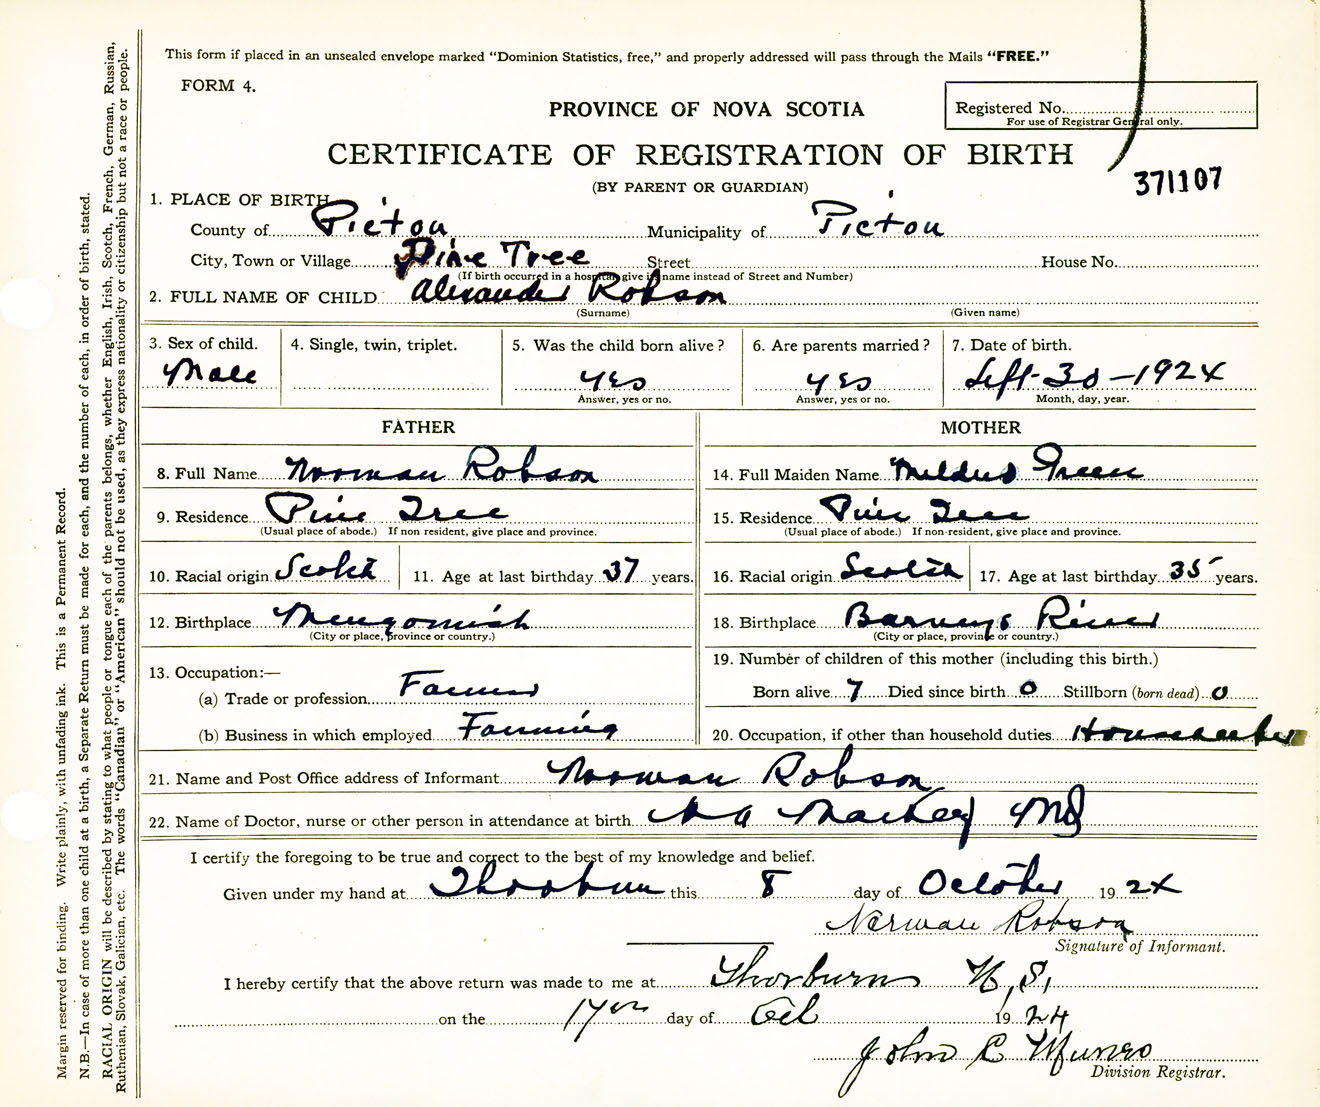 This form if placed in an unsealed envelope marked “Dominion Statistics, free,” and properly addressed will pass through the Mails “FREE.”
FORM 4.
PROVINCE OF NOVA SCOTIA
Registered No.
For use of Registrar General only.
CERTIFICATE OF REGISTRATION OF BIRTH
371107
(BY PARENT OR GUARDIAN)
1. PLACE OF BIRTH
County of Pictou Municipality of Pictou
City, Town or Village Pine Tree Street House No.
(If birth occurred in a hospital give its name instead of Street and Number)
2. FULL NAME OF CHILD Alexander Robson
(Surname) (Given name)
3. Sex of child. 4. Single, twin, triplet. 5. Was the child born alive? 6. Are parents married? 7. Date of birth.
Male yes yes Sept-30-1924
Answer, yes or no. Answer, yes or no. Month, day, year.
FATHER MOTHER
8. Full Name Norman Robson 14. Full Maiden Name Mildred Green
9. Residence Pine Tree 15. Residence Pine Tree
(Usual place of abode.) If non resident, give place and province. (Usual place of abode.) If non-resident, give place and province.
10. Racial origin Scotch 11. Age at last birthday 37 years. 16. Racial origin Scotch 17. Age at last birthday 35 years.
12. Birthplace Merigomish 18. Birthplace Barneys River
(City or place, province or country.) (City or place, province or country.)
13. Occupation:— 19. Number of children of this mother (including this birth.)
(a) Trade or profession Farmer Born alive 7 Died since birth 0 Stillborn (born dead) 0
(b) Business in which employed Farming 20. Occupation, if other than household duties Housekeeper
21. Name and Post Office address of Informant Norman Robson
22. Name of Doctor, nurse or other person in attendance at birth MacKay MD
I certify the foregoing to be true and correct to the best of my knowledge and belief.
Given under my hand at Thorburn this 8 day of October 1924
Norman Robson
Signature of Informant.
I hereby certify that the above return was made to me at Thorburn N.S.
on the 17 day of Oct 1924
John C Munro
Division Registrar.
Margin reserved for binding. Write plainly, with unfading ink. This is a Permanent Record.
N.B.—In case of more than one child at a birth, a Separate Return must be made for each, and the number of each, in order of birth, stated.
RACIAL ORIGIN will be described by stating to what people or tongue each of the parents belongs, whether English, Irish, Scotch, French, German, Russian,
Ruthenian, Slovak, Galician, etc. The words “Canadian” or “American” should not be used, as they express nationality or citizenship but not a race or people.